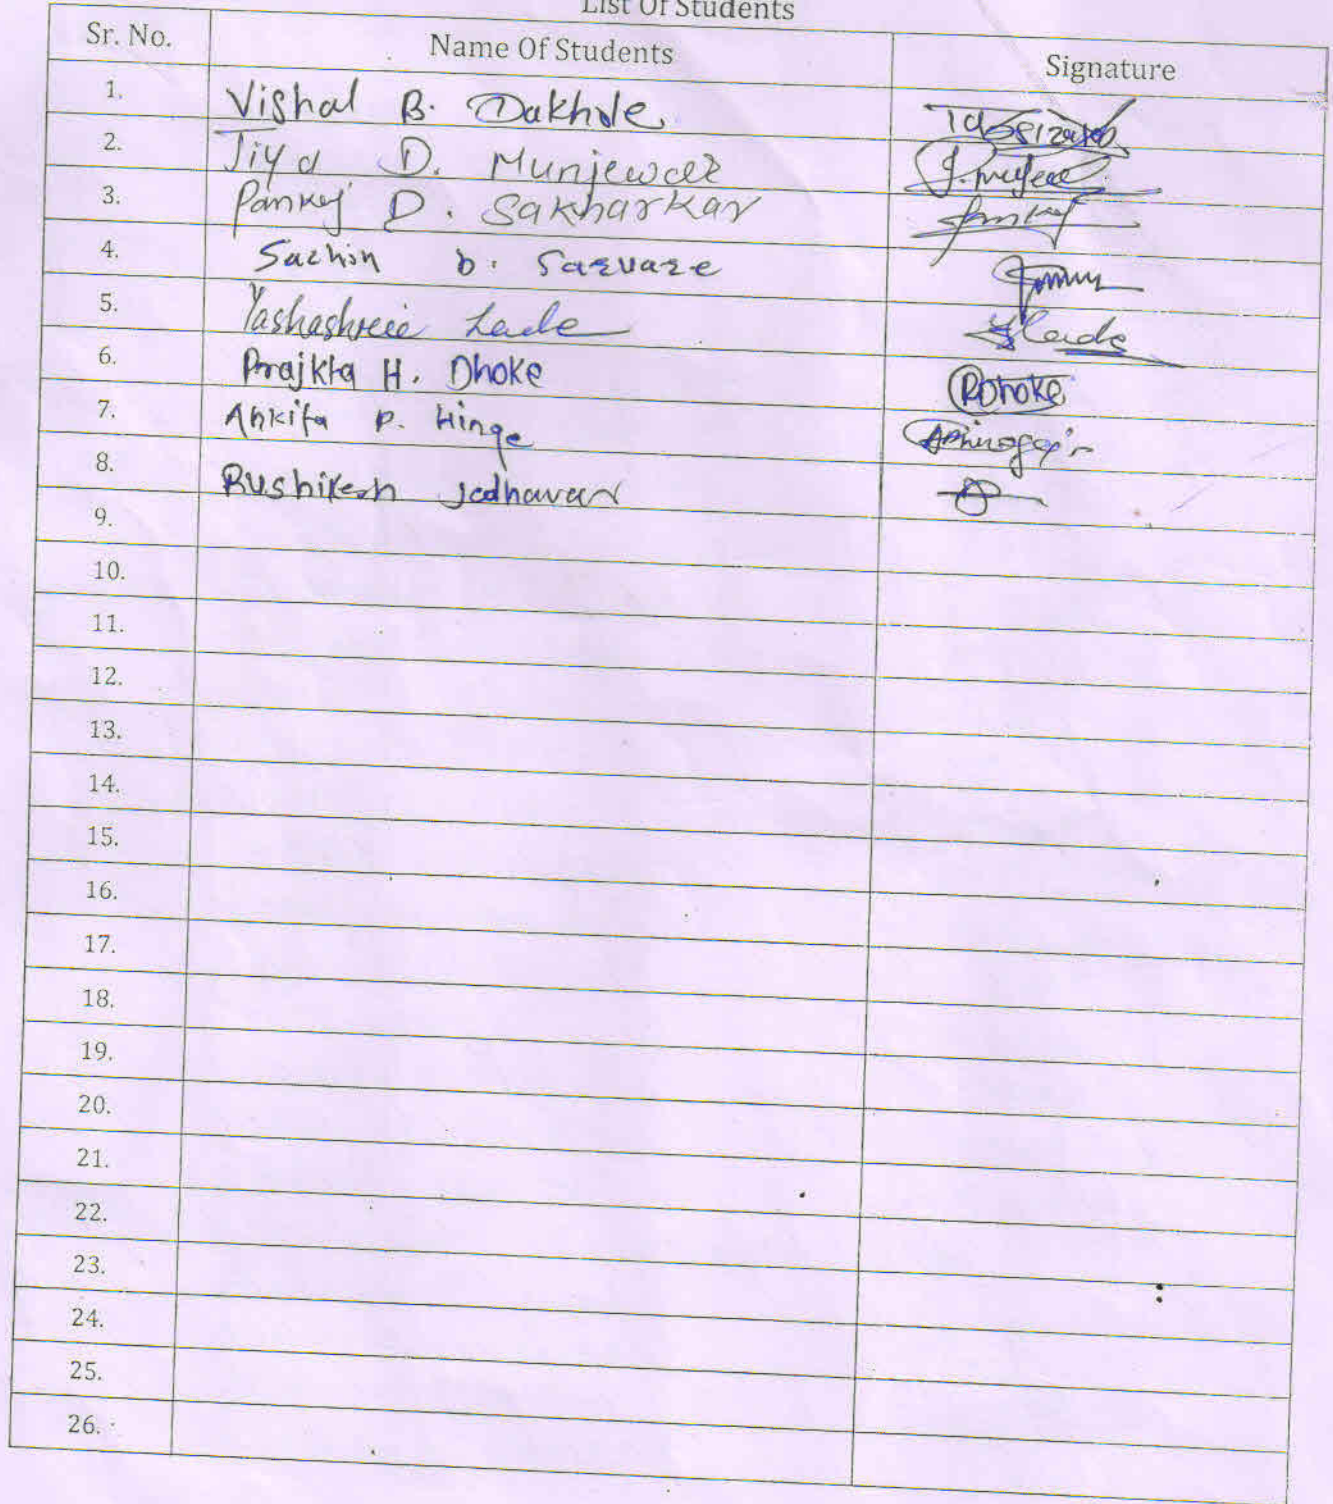 List Of Students
Sr. No. Name Of Students Signature
1. Vishal B. Dakhole
2. Jiya D. Munjewar
3. Pankaj D. Sakharkar
4. Sachin b. Sarvare
5. Yashashree Lade Lade
6. Prajkta H. Dhoke PDhoke
7. Ankita P. Hinge
8. Rushikesh Jadhavar
9.
10.
11.
12.
13.
14.
15.
16.
17.
18.
19.
20.
21.
22.
23.
24.
25.
26.